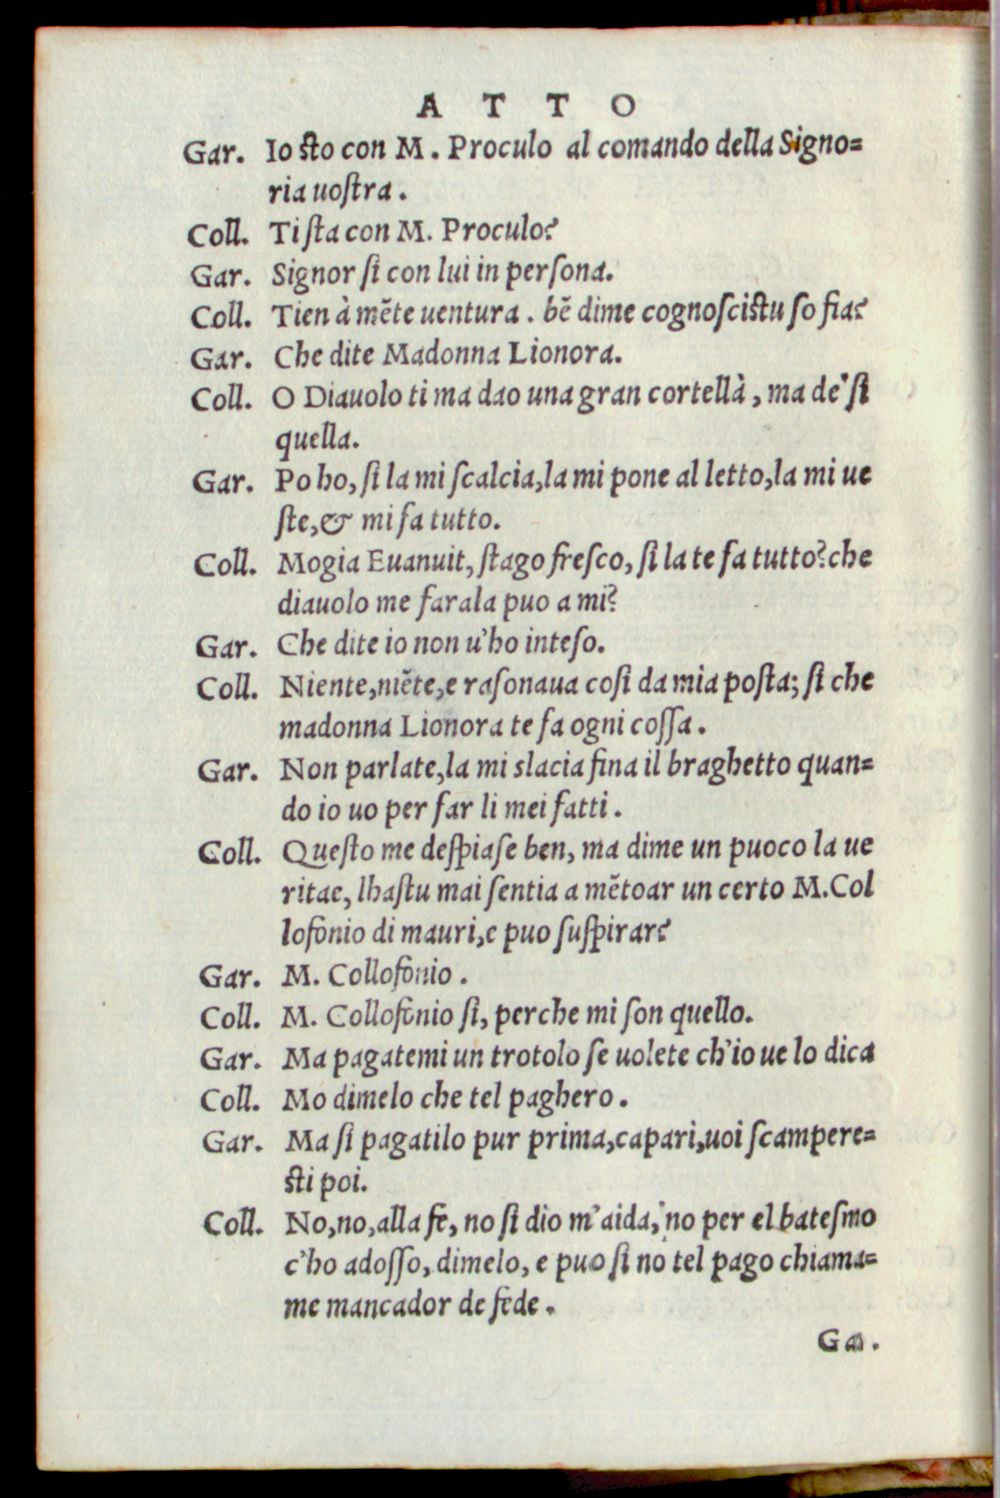 A T T O
Gar. Io sto con M. Proculo al comando della Signo=
ria uostra.
Coll. Ti sta con M. Proculo?
Gar. Signor si con lui in persona.
Coll. Tien à mẽte uentura. bẽ dime cognoscistu so fia?
Gar. Che dite Madonna Lionora.
Coll. O Diauolo ti ma dao una gran cortellà, ma de si
quella.
Gar. Po ho, si la mi scalcia, la mi pone al letto, la mi ue
ste, & mi fa tutto.
Coll. Mogia Euanuit, stago fresco, si la te fa tutto? che
diauolo me farala puo a mi?
Gar. Che dite io non u'ho inteso.
Coll. Niente, niẽte, e rasonaua cosi da mia posta; si che
madonna Lionora te fa ogni cossa.
Gar. Non parlate, la mi slacia fina il braghetto quan=
do io uo per far li mei fatti.
Coll. Questo me despiase ben, ma dime un puoco la ue
ritae, lhastu mai sentia a mẽtoar un certo M. Col
lofonio di mauri, e puo suspirar?
Gar. M. Collofonio.
Coll. M. Collofonio si, perche mi son quello.
Gar. Ma pagatemi un trotolo se uolete ch'io ue lo dica
Coll. Mo dimelo che tel paghero.
Gar. Ma si pagatilo pur prima, capari, uoi scampere=
sti poi.
Coll. No, no, alla fe, no si dio m'aida, no per el batesmo
c'ho adosso, dimelo, e puo si no tel pago chiama=
me mancador de fede.
Ga.